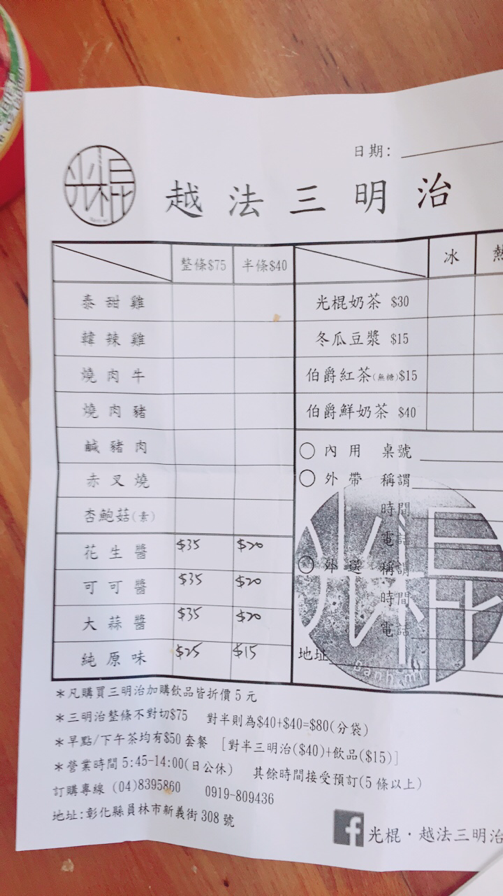 日期:
光棍
越法三明治
整條$75 半條$40 冰 熱
泰甜雞 光棍奶茶 $30
韓辣雞 冬瓜豆漿 $15
燒肉牛 伯爵紅茶(無糖)$15
燒肉豬 伯爵鮮奶茶 $40
鹹豬肉 ○內用 桌號
赤叉燒 ○外帶 稱謂
杏鮑菇(素) 時間
電話
花生醬 $35 $20
可可醬 $35 $20
大蒜醬 $35 $20
純原味 $25 $15
○外送 稱謂
時間
電話
地址
光棍
*凡購買三明治加購飲品皆折價5元
*三明治整條不對切$75 對半則為$40+$40=$80(分袋)
*早點/下午茶均有$50套餐 [對半三明治($40)+飲品($15)]
*營業時間5:45-14:00(日公休) 其餘時間接受預訂(5條以上)
訂購專線 (04)8395860 0919-809436
地址:彰化縣員林市新義街308號
f 光棍·越法三明治